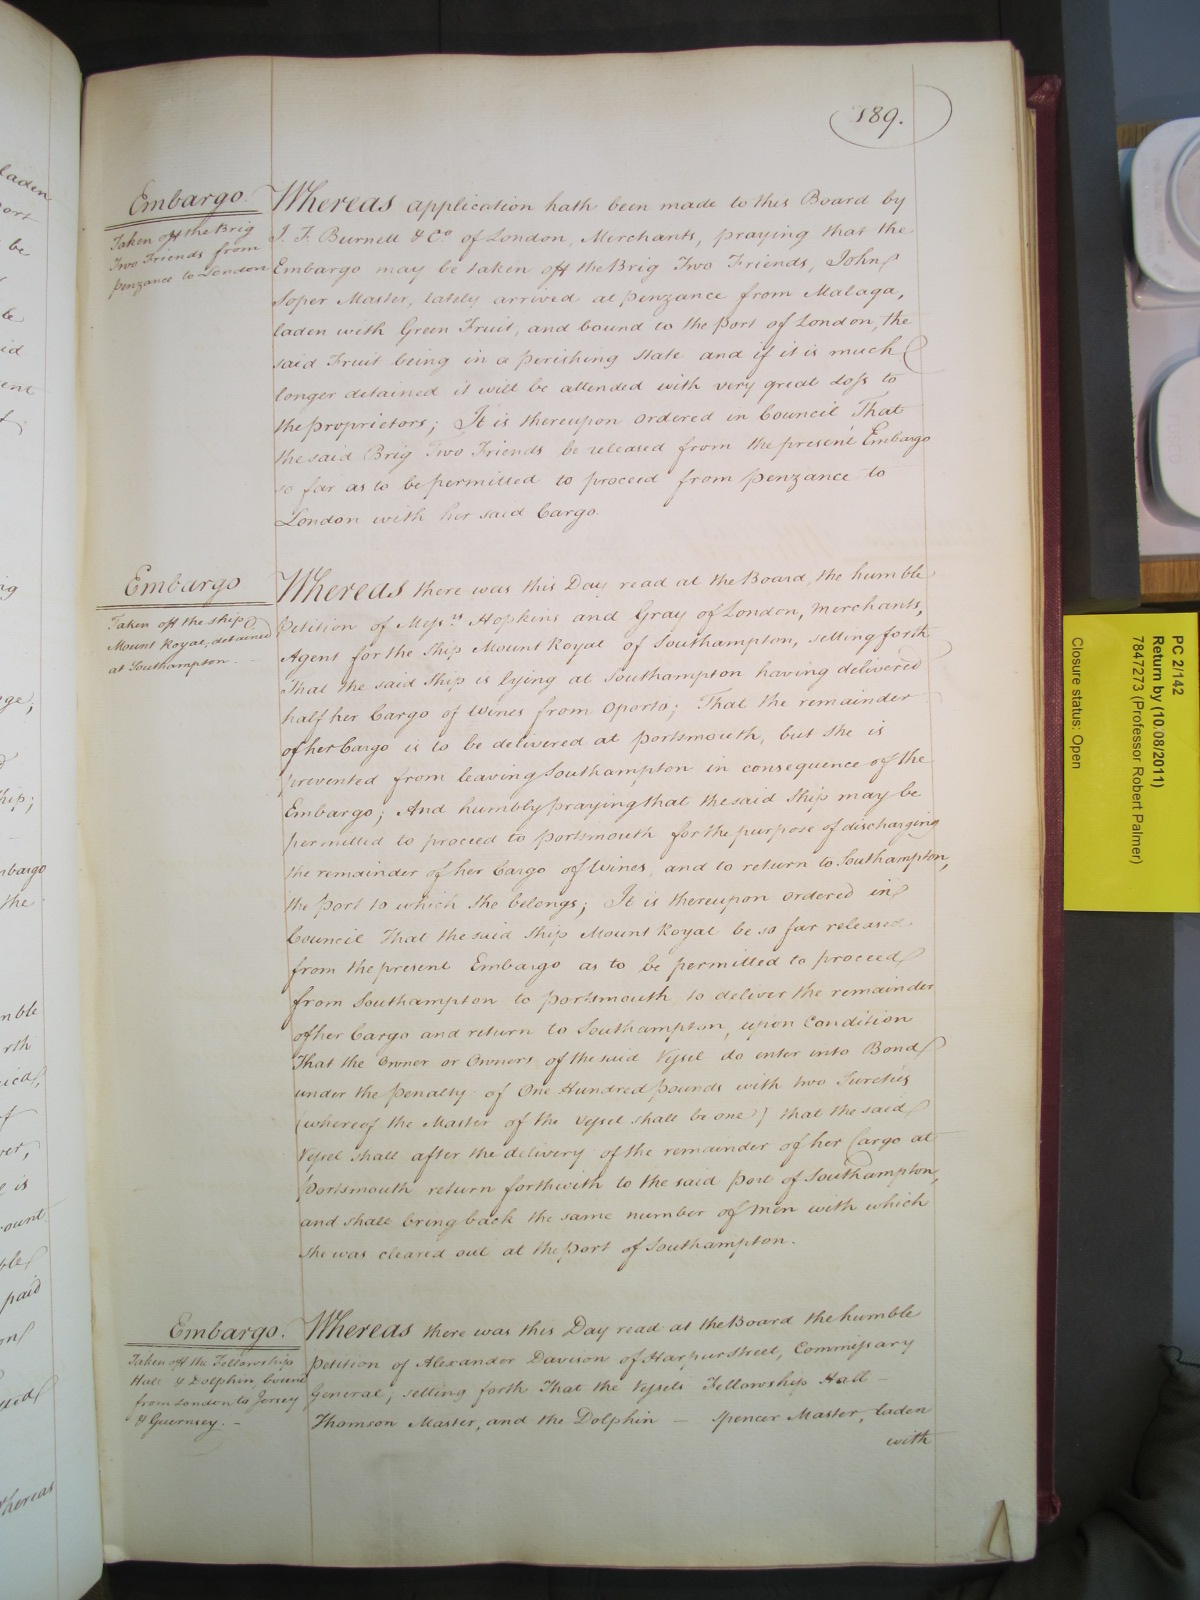 189.
Embargo.
Taken off the Brig
Two Friends from
Penzance to London
Whereas application hath been made to this Board by
J. F. Burnell & Co of London, Merchants, praying that the
Embargo may be taken off the Brig Two Friends, John
Soper Master, lately arrived at Penzance from Malaga,
laden with Green Fruit, and bound to the Port of London, the
said Fruit being in a perishing state and if it is much
longer detained it will be attended with very great Loss to
the proprietors; It is thereupon Ordered in Council That
the said Brig Two Friends be released from the present Embargo
so far as to be permitted to proceed from Penzance to
London with her said Cargo.
Embargo
Taken off the ship
Mount Royal, detained
at Southampton.
Whereas there was this Day read at the Board, the humble
Petition of Messrs Hopkins and Gray of London, Merchants,
Agent for the Ship Mount Royal of Southampton, setting forth
That the said Ship is lying at Southampton having delivered
half her Cargo of Wines from Oporto; That the remainder
of her Cargo is to be delivered at Portsmouth, but She is
prevented from leaving Southampton in consequence of the
Embargo; And humbly praying that the said Ship may be
permitted to proceed to Portsmouth for the purpose of discharging
the remainder of her Cargo of Wines, and to return to Southampton,
the Port to which She belongs; It is thereupon Ordered in
Council That the said Ship Mount Royal be so far released
from the present Embargo as to be permitted to proceed
from Southampton to Portsmouth to deliver the remainder
of her Cargo and return to Southampton, upon Condition
That the Owner or Owners of the said Vessel do enter into Bond
under the Penalty of One Hundred Pounds with two Sureties
(whereof the Master of the Vessel shall be one) that the said
Vessel shall after the delivery of the remainder of her Cargo at
Portsmouth return forthwith to the said Port of Southampton,
and shall bring back the same number of Men with which
She was cleared out at the Port of Southampton.
Embargo.
Taken off the Fellowship
Hall & Dolphin bound
from London to Jersey
& Guernsey. -
Whereas there was this Day read at the Board the humble
Petition of Alexander Davison of Harpur Street, Commissary
General; setting forth That the Vessels Fellowship Hall -
Thomson Master, and the Dolphin - Spencer Master, laden
with
PC 2/142
Return by (10/08/2011)
7847273 (Professor Robert Palmer)
Closure status: Open